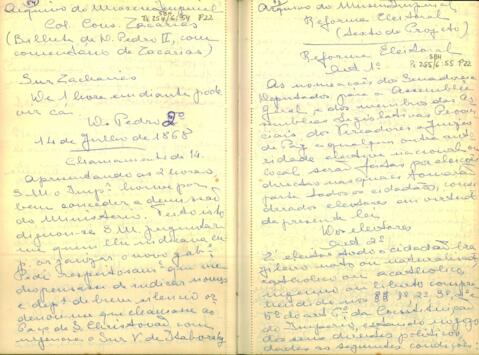 Arquivo do Museu Imperial
Col. Cons. Zacarias
584
P22
(Bilhete de D. Pedro II, com
comentario de Zacarias)
Snr Zacharias
De 1 hora em diante pode
vir cá.
D. Pedro 2º
14 de Julho de 1868
Chamamento de 14.
Apresentando às 2 horas
S. M. o Impº houve por
bem conceder a demissão
do Ministerio. Feito isto
dignou-se S. M. perguntar
me quem lhe indicava eu
pª organizar o novo gabº
Pedi respeitosamº que me
dispensasse de indicar nomes
e deptº de breve silencio or-
denou me que chamasse ao
Paço de S. Christovão, com
urgencia o Snr V. de Itaborahy
Arquivo do Museu Imperial
Reforma Eleitoral
(texto do Projeto)
Reforma Eleitoral
584
P22
Art 1º
As nomeações dos Senadores e
Deputados para a Assemblea
Geral e dos membros das As
sembleas Legislativas Provin
ciais dos Vereadores e juizes
de Paz e qualquer outra auto
ridade electiva nacional ou
local serão feitas por eleição
directa nas quais tomarão
parte todos os cidadãos, consi
derados eleitores em virtude
da presente lei.
Dos eleitores
Art 2º
É eleitor todo o cidadão bra
zileiro nato ou naturalizado,
catholico ou acatholico,
ingenuo ou liberto compre
hendido nos §§ 1º 2º 3º, 4º e
5º do artº 6º da Constituição
do Imperio, estando no gozo
dos seus direitos politicos,
dadas as seguintes condições: